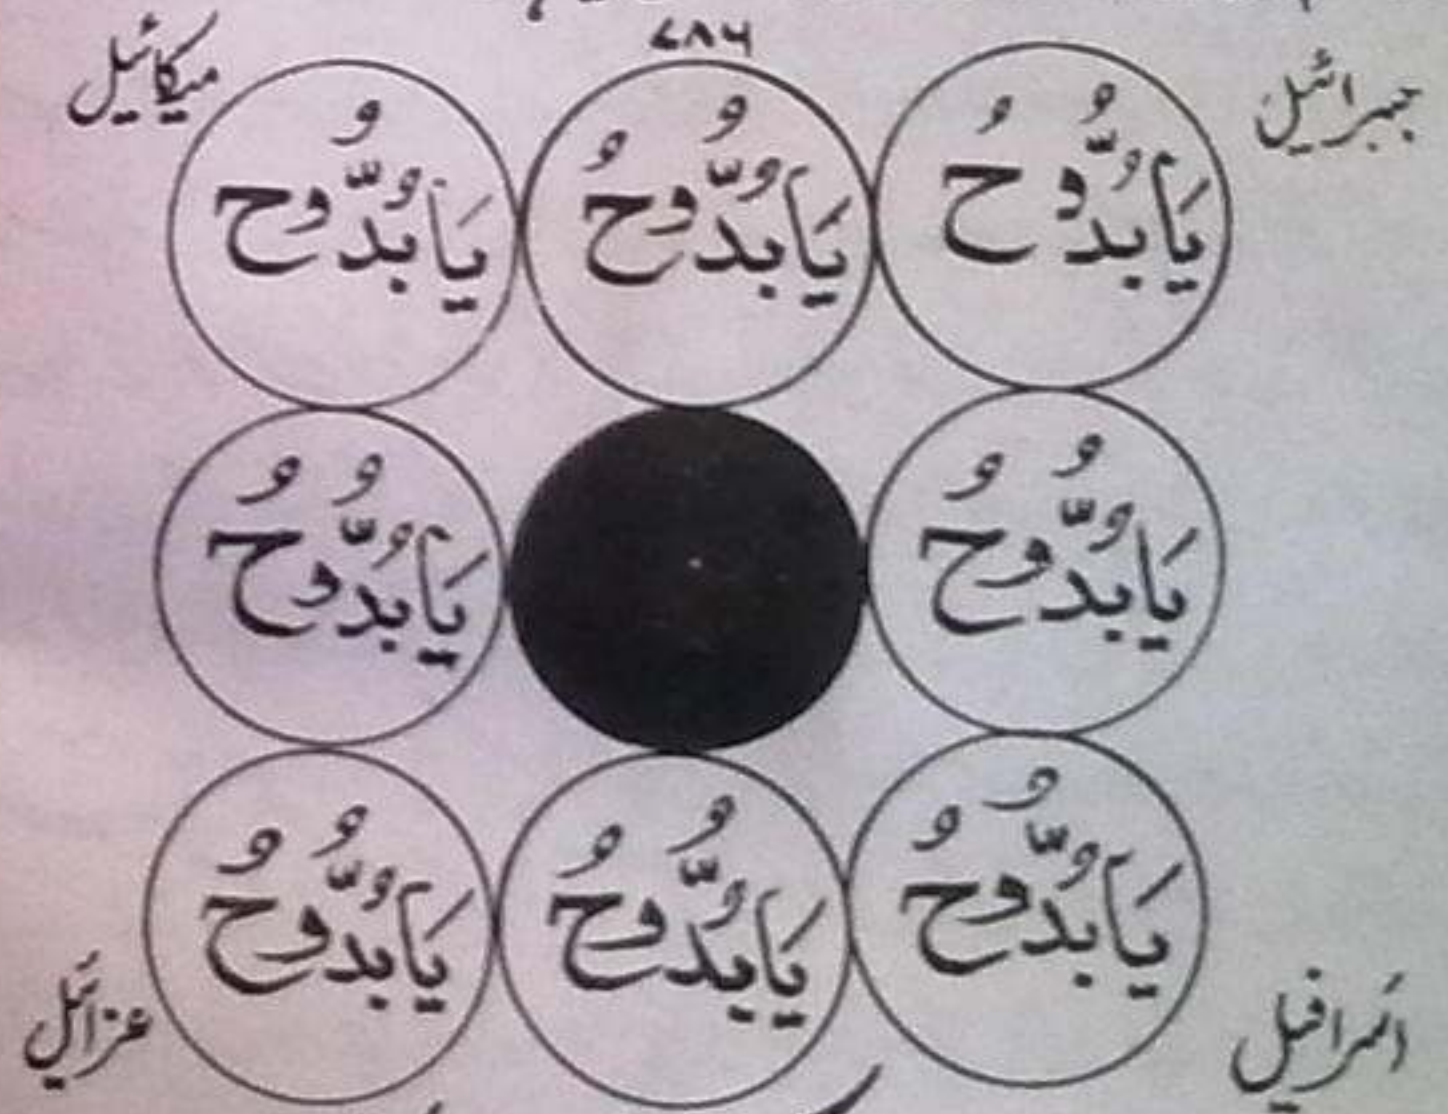 ۷۸۶
جبرائیل
میکائیل
يَابُدُّوحُ يَابُدُّوحُ يَابُدُّوح
يَابُدُّوحُ يَابُدُّوحُ
يَابُدُّوحُ يَايُدُّوحُ يَابُدُّوحُ
اسرافیل
عزائیل